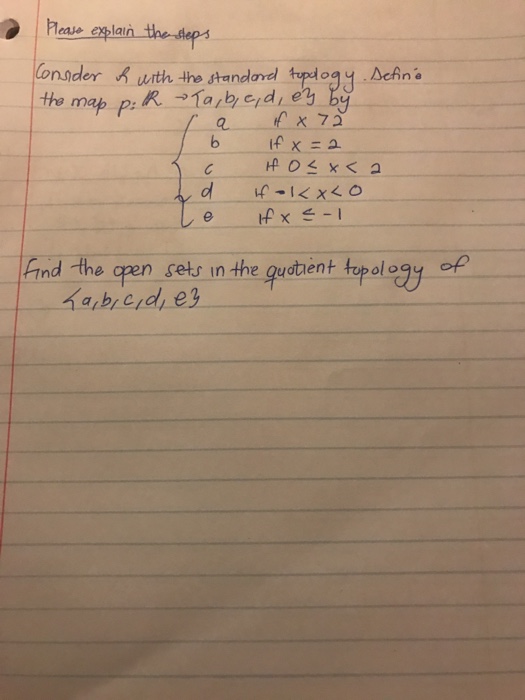 Please explain the steps
Consider R with the standard topology. Define
the map p: R → {a, b, c, d, e} by
a if x > 2
b if x = 2
c if 0 ≤ x < 2
d if -1 < x < 0
e if x ≤ -1
Find the open sets in the quotient topology of
{a, b, c, d, e}